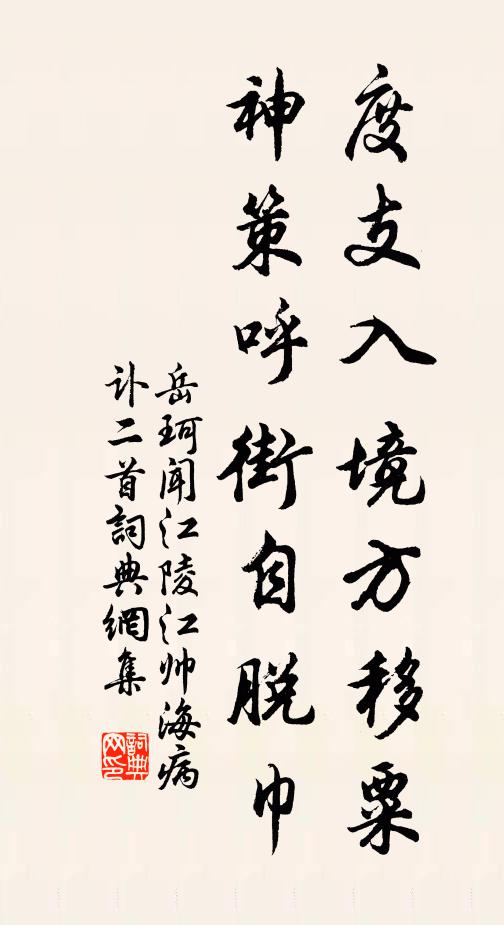 度支入境方移粟
神策呼街自脱巾
岳珂闻江陵江帅海病
讣二首詞典網集
詞典
网印